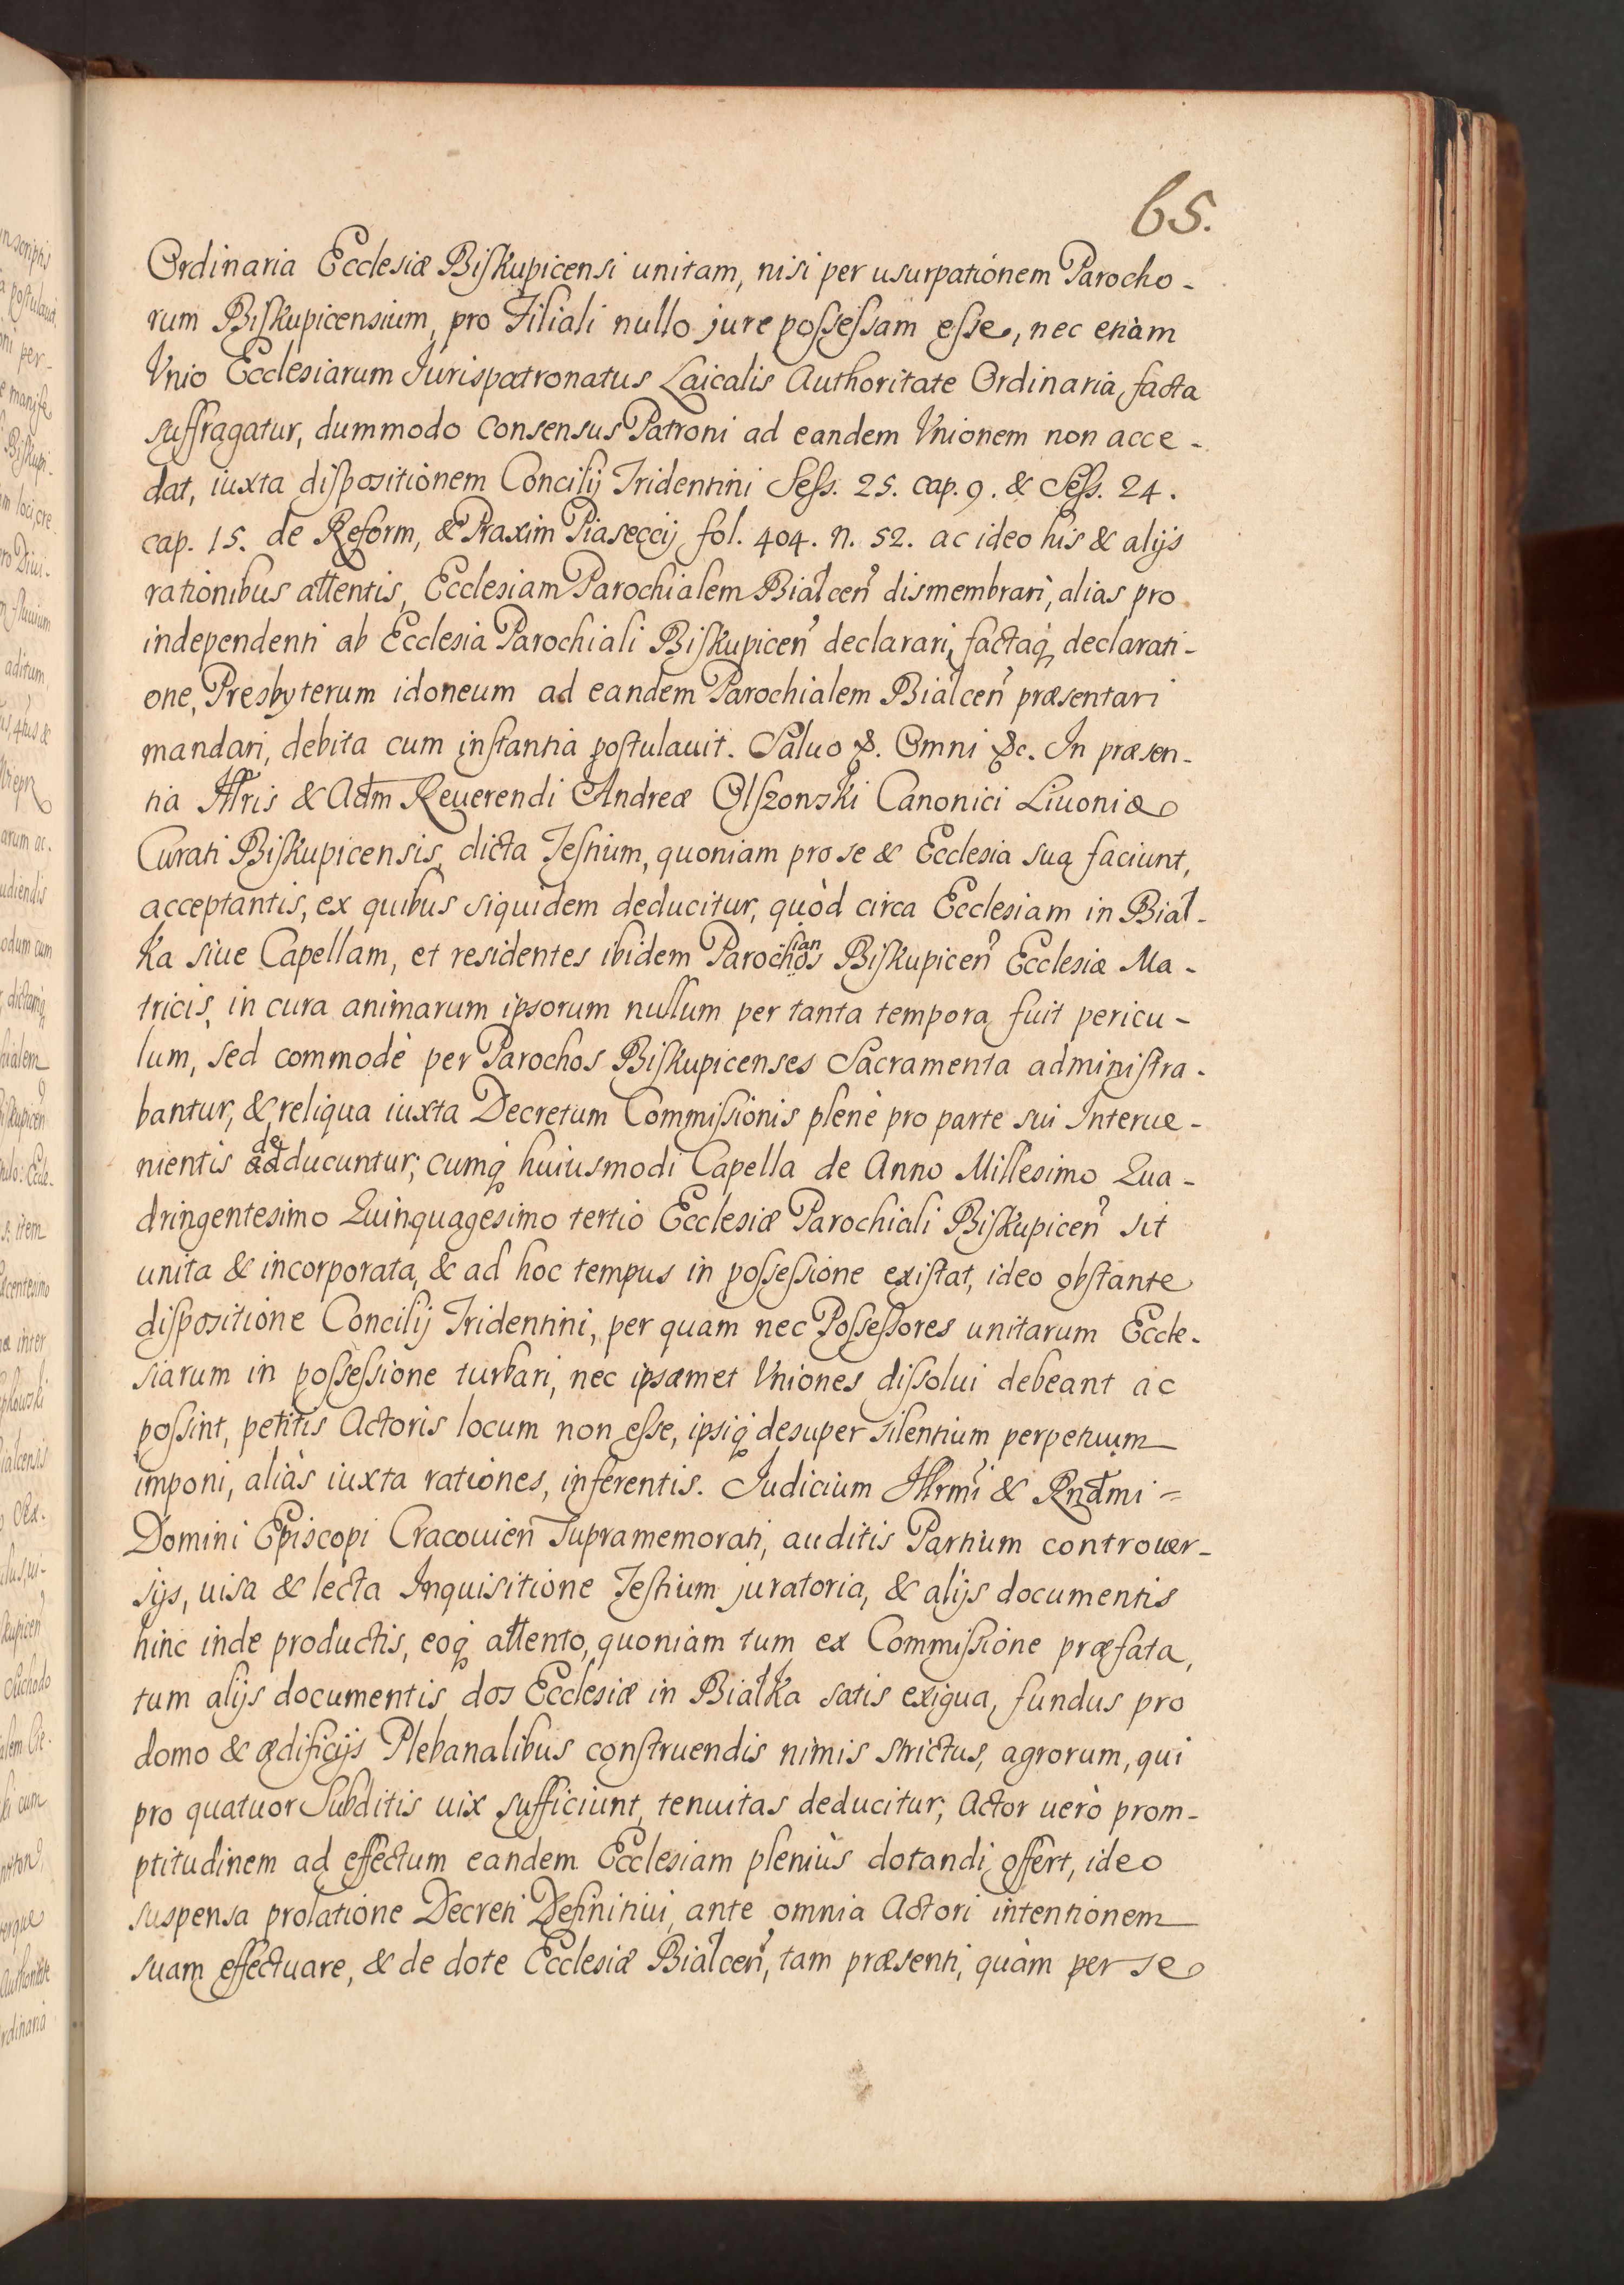 65.
Ordinaria Ecclesiæ Biskupicensi unitam, nisi per usurpationem Parocho-
rum Biskupicensium, pro Filiali nullo jure possessam esse, nec etiam
Vnio Ecclesiarum Iurispatronatus Laicalis Authoritate Ordinaria facta
suffragatur, dummodo consensus Patroni ad eandem Vnionem non acce-
dat, iuxta dispositionem Concilij Tridentini Sess. 25. cap. 9. & Sess. 24.
cap. 15. de Reform, & Praxim Piaseccij fol. 404. n. 52. ac ideo his & alijs
rationibus attentis, Ecclesiam Parochialem Białcen̉ dismembrari, alias pro
independenti ab Ecclesia Parochiali Biskupicen̉ declarari, factaq̨ declarati-
one, Presbyterum idoneum ad eandem Parochialem Białcen̉ præsentari
mandari, debita cum instantia postulauit. Saluo &. Omni &c. In præsen-
tia Illris & Adm̄ Reuerendi Andreæ Olszonski Canonici Liuoniæ
Curati Biskupicensis, dicta Testium, quoniam pro se & Ecclesia sua faciunt,
acceptantis, ex quibus siquidem deducitur, quòd circa Ecclesiam in Biał-
ka siue Capellam, et residentes ibidem Parochianos Biskupicen̉ Ecclesiæ Ma-
tricis, in cura animarum ipsorum nullum per tanta tempora fuit pericu-
lum, sed commodè per Parochos Biskupicenses Sacramenta administra-
bantur, & reliqua iuxta Decretum Commissionis plenè pro parte sui Interue-
nientis deducuntur; cumq̨ huiusmodi Capella de Anno Millesimo Qua-
dringentesimo Quinquagesimo tertio Ecclesiæ Parochiali Biskupicen̉ sit
unita & incorporata, & ad hoc tempus in possessione existat, ideo obstante
dispositione Concilij Tridentini, per quam nec Possessores unitarum Eccle-
siarum in possessione turbari, nec ipsæmet Vniones dissolui debeant ac
possint, petitis Actoris locum non esse, ipsiq̨ desuper silentium perpetuum
imponi, aliàs iuxta rationes, inferentis. Judicium Illrmi & Rnd̄mi =
Domini Episcopi Cracouien̄ supramemorati, auditis Partium controuer-
sijs, uisa & lecta Inquisitione Testium juratoria, & alijs documentis
hinc inde productis, eoq̨ attento, quoniam tum ex Commissione præfata,
tum alijs documentis dos Ecclesiæ in Białka satis exigua, fundus pro
domo & ædificijs Plebanalibus construendis nimis strictus, agrorum, qui
pro quatuor Subditis uix sufficiunt, tenuitas deducitur; Actor uerò prom-
ptitudinem ad effectum eandem Ecclesiam pleniùs dotandi offert, ideo
suspensa prolatione Decreti Definitiui, ante omnia Actori intentionem
suam effectuare, & de dote Ecclesiæ Białcen̉, tam præsenti, quàm per se